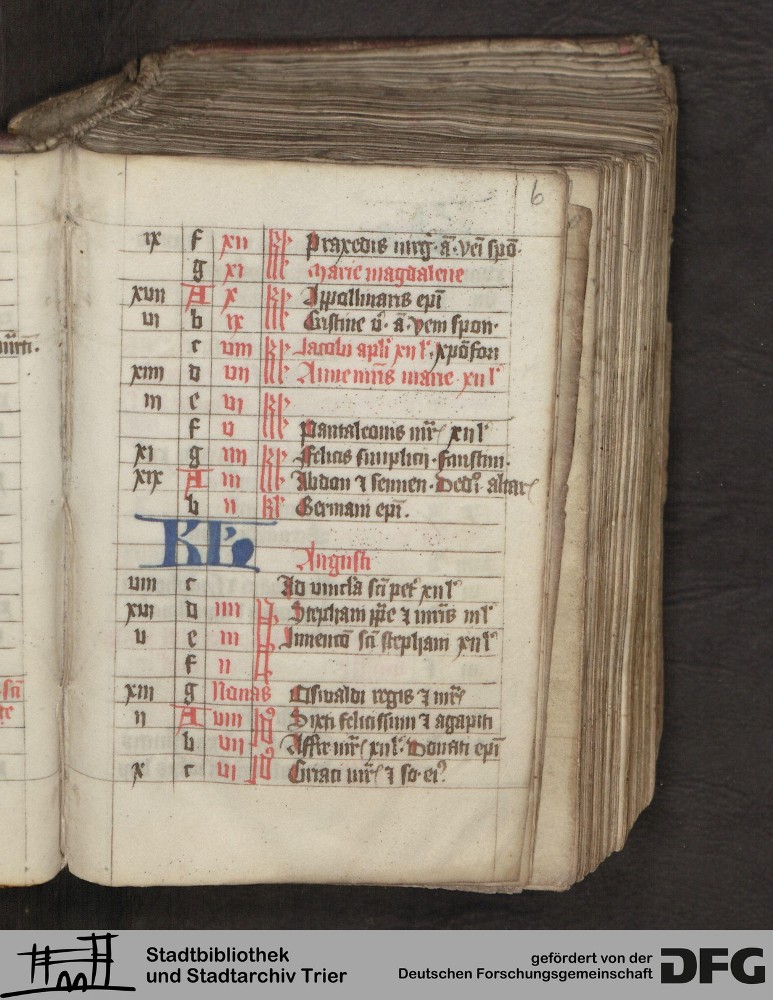 6
ix f xii kl Praxedis virg̃ · ã · vel spõ ·
g xi kl Marie magdalene
xvii A x kl Appollinaris epi
vi b ix kl Cristine v̊ · ã · vem spon ·
c viii kl Jacobi apli xii l · xpofori
xiiii d vii kl Anne mr̃is marie xii l
iii e vi kl
f v kl Pantaleonis mr̃ xii l
xi g iiii kl Felicis simplicii · faustini ·
xix A iii kl Abdon ⁊ sennen · Dedi altar
b ii kl Germani epi .
KL
Augusti
viii c Ad vincla sci pet xii l
xvi d iiii Stephani pp̃e ⁊ mr̃is iii l
v e iii Inuentio sci stephani xii l
f ii
xiii g Nonas Oswaldi regis ⁊ mr̃
ii A viii id Sixti felicissimi ⁊ agapiti
b vii Affre mr̃ xii l · Donati epi
x c vi id Ciriaci mr̃ ⁊ so · ei9
Stadtbibliothek
und Stadtarchiv Trier
gefördert von der
Deutschen Forschungsgemeinschaft
DFG